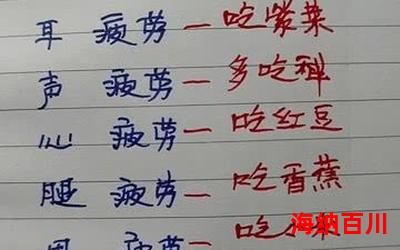 耳 疲劳一吃紫菜
声 疲劳一多吃科
心 疲劳一吃红豆
腿 疲劳一吃香蕉
疲劳一吃
海纳百川